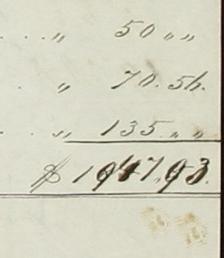 . . . „ 50 „ „
. „ 70. 56.
. . „ 135. „ „
$ 1947. 93.